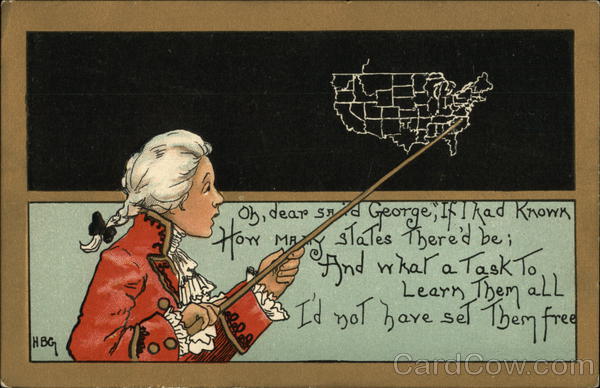 Oh, dear said George, "If I had Known
How many states There'd be;
And what a Task To
Learn Them all
I'd not have set Them free
HBG
CardCow.com